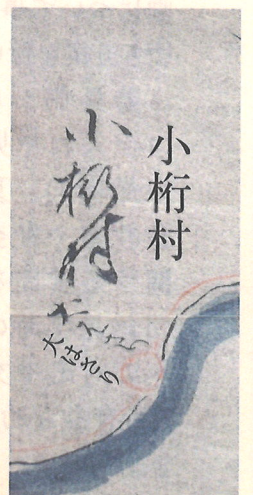 小桁村
小桁村
大はざり